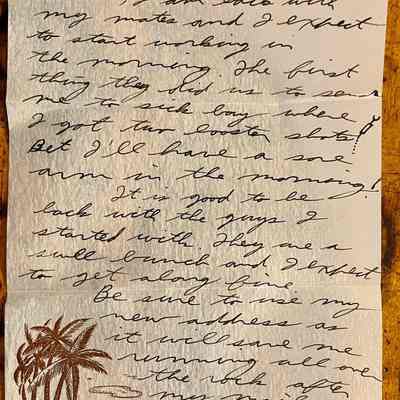 my mates and I expect
to start working in
the morning. The first
thing they did us to sen
me to sick bay where
I got two booster shots!
Bet I'll have a sore
arm in the morning!
It is good to be
back with the guys I
started with. They are a
swell bunch and I expect
to get along fine
Be sure to use my
new address as
it will save me
running all over
the rock after
my mail